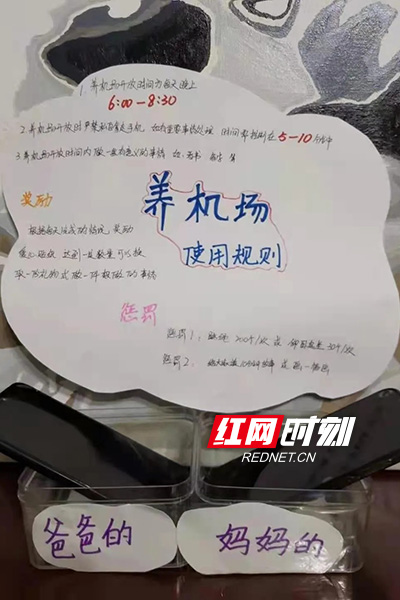 1. 养机场开放时间为每天晚上
6:00-8:30
2. 养机场开放时严禁私自拿走手机, 如有重要事情处理 时间控制在5-10分钟
3. 养机场开放时间内 做一些有意义的事情 如: 看书
养机场
使用规则
奖励
根据每天完成的情况, 奖励
达到一定数量可以换
取一份礼物或做一件 的事情
惩罚
惩罚1:
惩罚2.
红网时刻
REDNET.CN
爸爸的
妈妈的